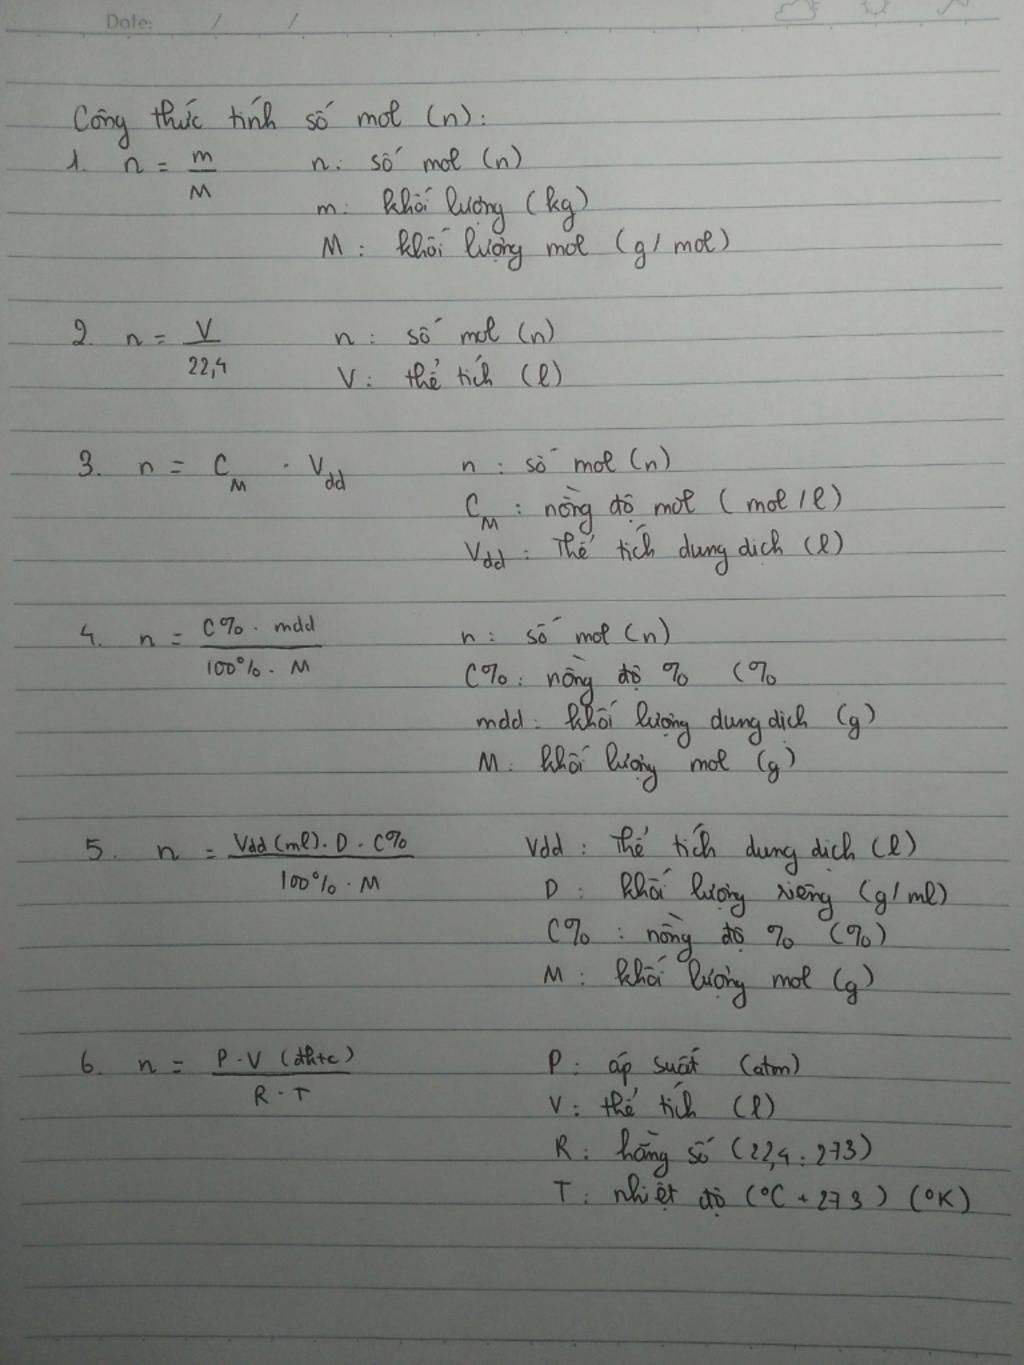 Date: / /
Công thức tính số mol (n):
1. n = m/M n: số mol (n)
m: khối lượng (kg)
M: khối lượng mol (g/mol)
2. n = V/22,4 n: số mol (n)
V: thể tích (l)
3. n = C_M . V_dd n: số mol (n)
C_M: nồng độ mol (mol/l)
V_dd: Thể tích dung dịch (l)
4. n = C% . mdd / 100% . M n: số mol (n)
C%: nồng độ % (%
mdd: khối lượng dung dịch (g)
M: khối lượng mol (g)
5. n = Vdd (ml) . D . C% / 100% . M Vdd: Thể tích dung dịch (l)
D: khối lượng riêng (g/ml)
C%: nồng độ % (%)
M: khối lượng mol (g)
6. n = P.V (đktc) / R.T P: áp suất (atm)
V: thể tích (l)
R: hằng số (22,4:273)
T: nhiệt độ (°C + 273) (°K)